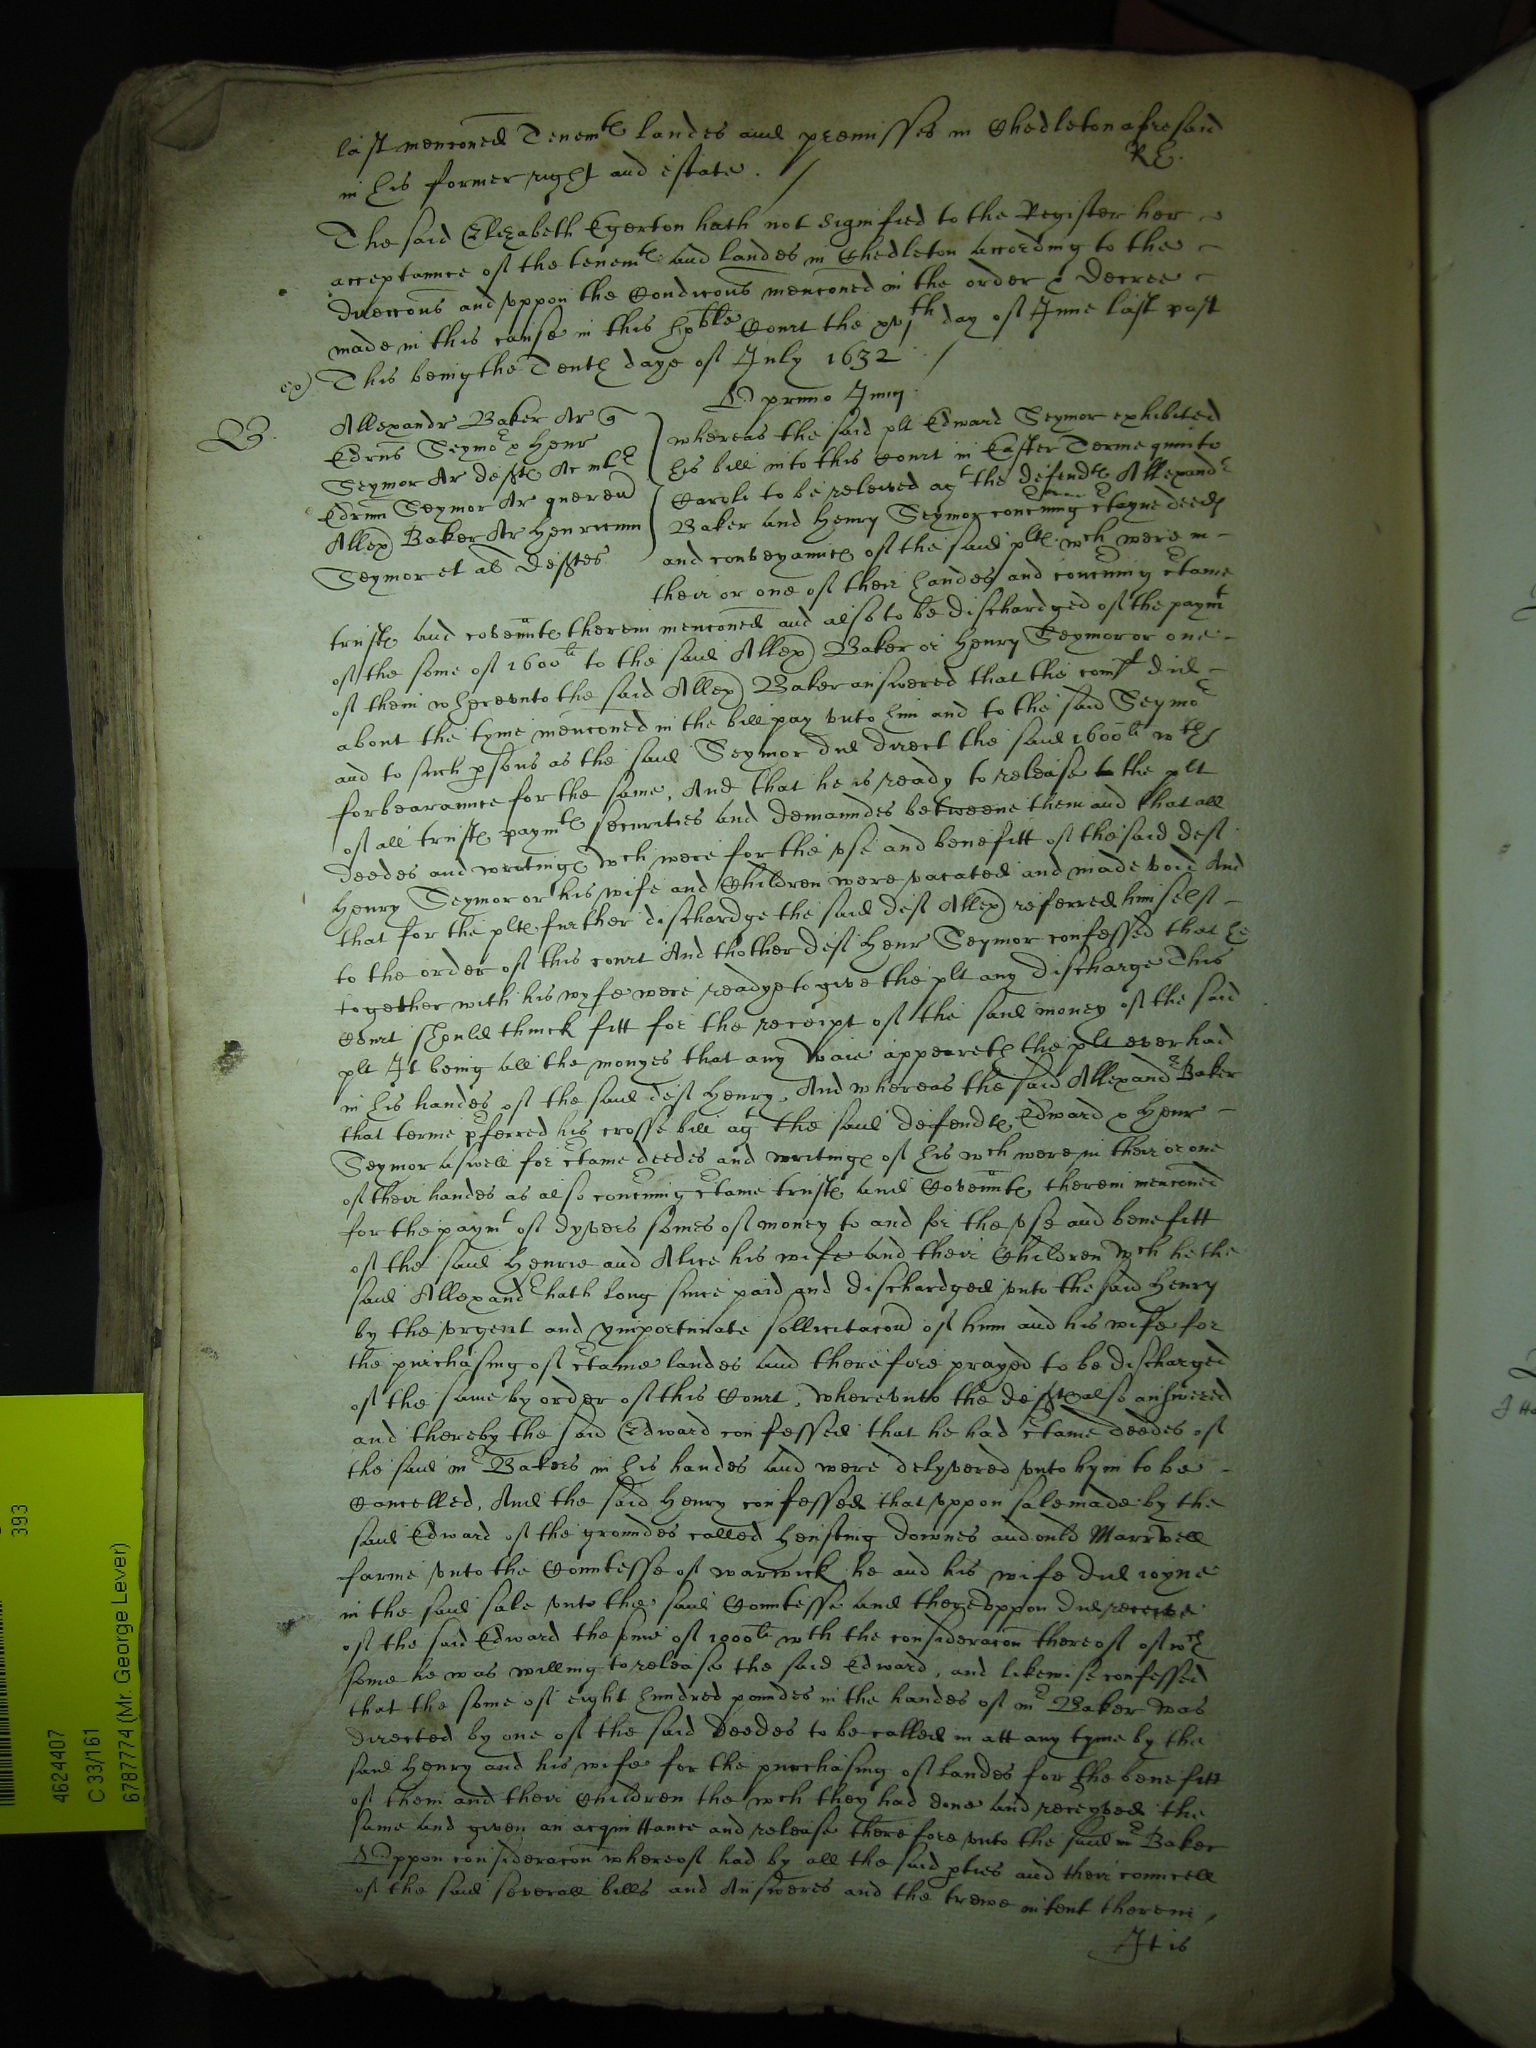 last menconed Tenemtes landes and premisses in Chedleton aforesaid
in his former right and estate. / RE.
The said Elizabeth Egerton hath not signified to the Register her
acceptannce of the tenemtes and landes in Chedleton according to the
direccons and vppon the Condicons menconed in the order & Decree
made in this cause in this hoble Court the xvjth day of June last past
This being the Tenth daye of July 1632 /
primo Junij
B.
Allexandr Baker Ar q
Edrus Seymor & Henr
Seymor Ar defts
Edrum Seymor Ar queren
Allex Baker Ar Henricum
Seymor et al Deftes
whereas the said plt Edward Seymor exhibited
his bill into this Court in Easter Terme quinto
Caroli to be releived agt the defendtes Allexandr
Baker and Henry Seymor concerning certayne deedes
and conveyannces of the said pltes wch were in
their or one of their handes and concerning certaine
trustes and covenntes therein menconed and also to be dischardged of the paymt
of the some of 1600li to the said Allex Baker or Henry Seymor or one
of them wherevnto the said Allex Baker answered that the complt did
about the tyme menconed in the bill pay vnto him and to the said Seymor
and to such persons as the said Seymor did direct the said 1600li wth
forbearannce for the same, And that he is ready to release to the plt
of all trustes paymtes securities and demanndes betweene them and that all
deedes and writinges wch were for the vse and benefitt of the said deft
Henry Seymor or his wife and Children were vacated and made void And
that for the pltes further dischardge the said deft Allex referred himself
to the order of this court And thother deft Henr Seymor confessed that he
together with his wyfe were readye to give the plt any discharge This
Court should thinck fitt for the receipt of the said money of the said
plt It being all the monyes that any waie appeareth the plt ever had
in his handes of the said deft Henry, And whereas the said Allexandr Baker
that terme preferred his crosse bill agt the said defendtes Edward & Henr
Seymor aswell for certaine deedes and writinges of his wch were in their or one
of their handes as also concerning certaine trustes and Covenntes therein menconed
for the paymt of dyvers somes of money to and for the vse and benefitt
of the said Henrie and Alice his wife and their Children wch he the
said Allexandr hath long since paid and dischardged vnto the said Henry
by the vrgent and ymportunate sollicitacon of him and his wife for
the purchasing of certaine landes and therefore prayed to be discharged
of the same by order of this Court, wherevnto the deftes also answered
and thereby the said Edward confessed that he had certaine deedes of
the said mr Bakers in his handes and were delyvered vnto hym to be
Cancelled, And the said Henry confessed that vppon sale made by the
said Edward of the groundes called Hensting Downes and ould Marwell
farme vnto the Countesse of warwick he and his wife did ioyne
in the said sale vnto the said Countesse and therevppon did receive
of the said Edward the some of 1000li wth the consideracon thereof of wch
some he was willing to release the said Edward, and likewise confessed
that the some of eight hundred poundes in the handes of mr Baker was
directed by one of the said Deedes to be called in att any tyme by the
said Henry and his wife for the purchasing of landes for the benefitt
of them and their Children the wch they had done and receyved the
same and given an acquittance and release therefore vnto the said mr Baker
Vppon consideracon whereof had by all the said pties and their councell
of the said severall bills and Answeres and the trewe intent therein,
It is
393
4624407
C 33/161
6787774 (Mr. George Lever)